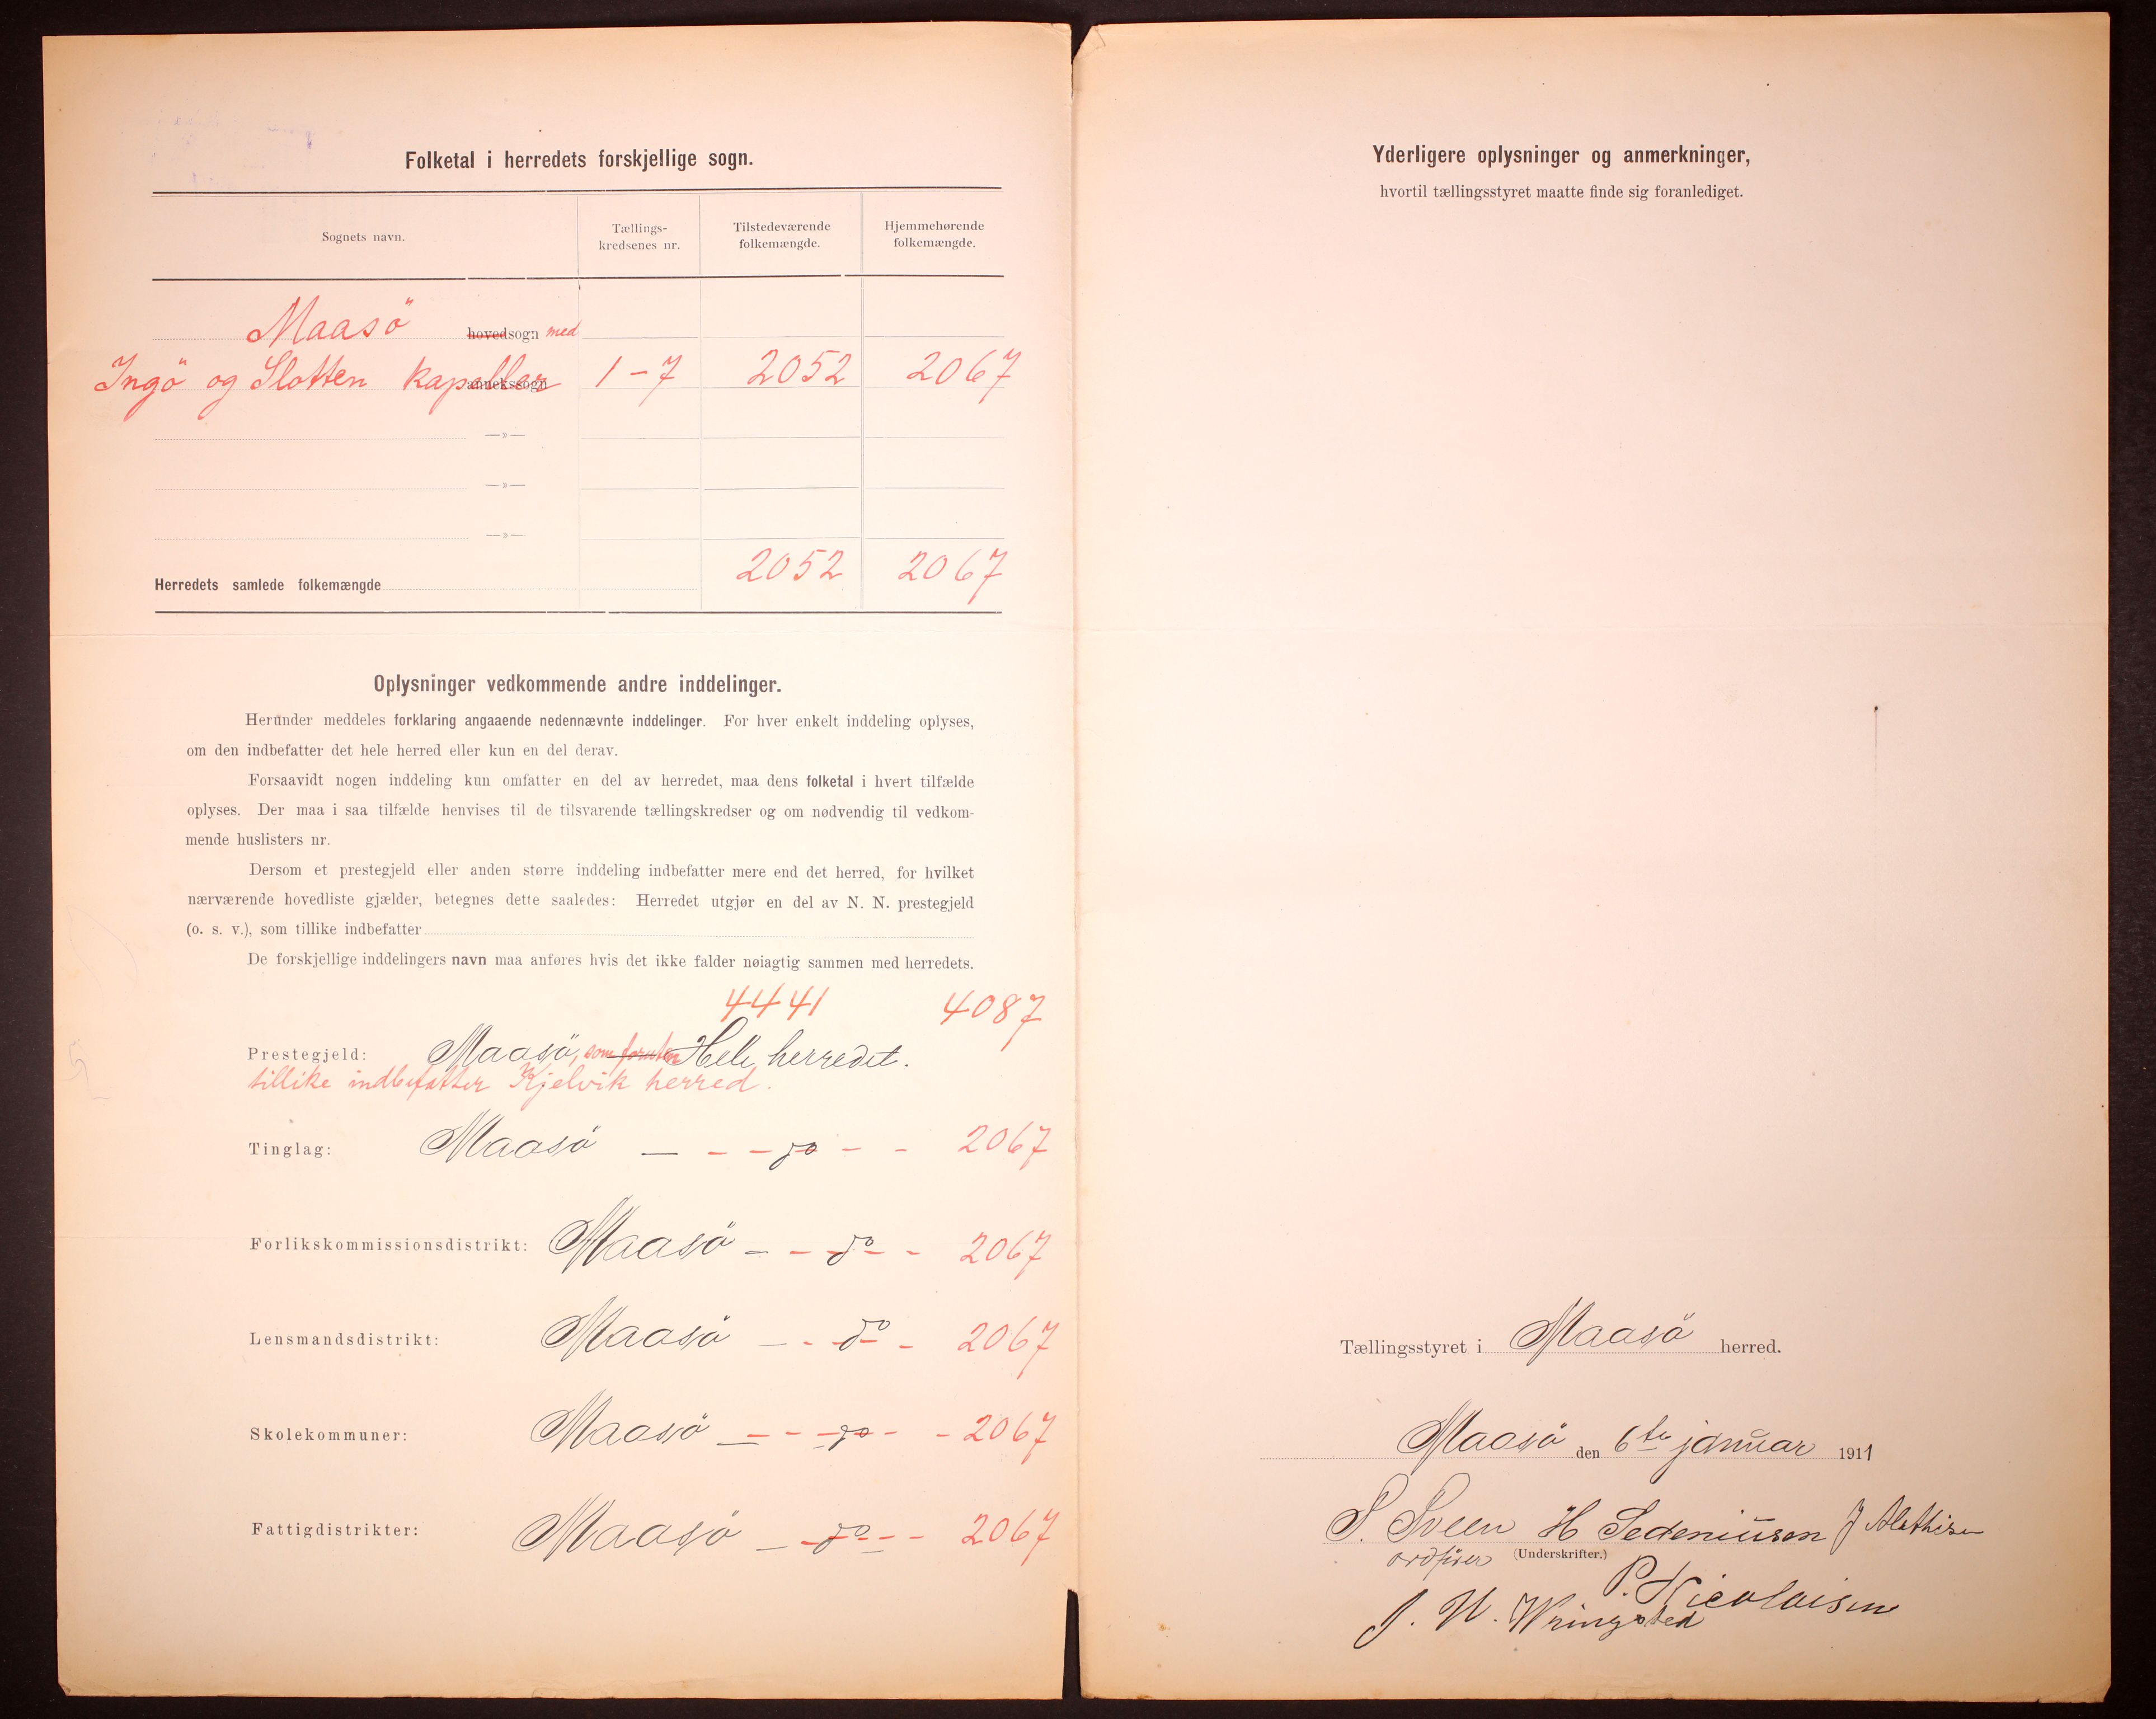 Folketal i herredets forskjellige sogn.
Sognets navn.
Tællings-
kredsenes nr.
Tilstedeværende
folkemængde.
Hjemmehørende
folkemængde.
Maasö hovedsogn med
Ingö og Slotten kapeller annekssogn 1-7 2052 2067
—»—
—»—
—»—
Herredets samlede folkemængde 2052 2067
Oplysninger vedkommende andre inddelinger.
Herunder meddeles forklaring angaaende nedennævnte inddelinger. For hver enkelt inddeling oplyses,
om den indbefatter det hele herred eller kun en del derav.
Forsaavidt nogen inddeling kun omfatter en del av herredet, maa dens folketal i hvert tilfælde
oplyses. Der maa i saa tilfælde henvises til de tilsvarende tællingskredser og om nødvendig til vedkom-
mende huslisters nr.
Dersom et prestegjeld eller anden større inddeling indbefatter mere end det herred, for hvilket
nærværende hovedliste gjælder, betegnes dette saaledes: Herredet utgjør en del av N. N. prestegjeld
(o. s. v.), som tillike indbefatter
De forskjellige inddelingers navn maa anføres hvis det ikke falder nøiagtig sammen med herredets.
4441 4087
Prestegjeld: Maasö, som foruten Hele herredet.
tillike indbefatter Kjelvik herred.
Tinglag: Maasö — - - do - - 2067
Forlikskommissionsdistrikt: Maasö - - do - - 2067
Lensmandsdistrikt: Maasö - - do - 2067
Skolekommuner: Maasö - - do - - 2067
Fattigdistrikter: Maasö - do - - 2067
Yderligere oplysninger og anmerkninger,
hvortil tællingsstyret maatte finde sig foranlediget.
Tællingsstyret i Maasö herred.
Maasö den 6te januar 1911
P. Sveen H Sedeniusen J Mathisen
ordfører (Underskrifter.)
P. Nicolaisen
J. W. Wringsted